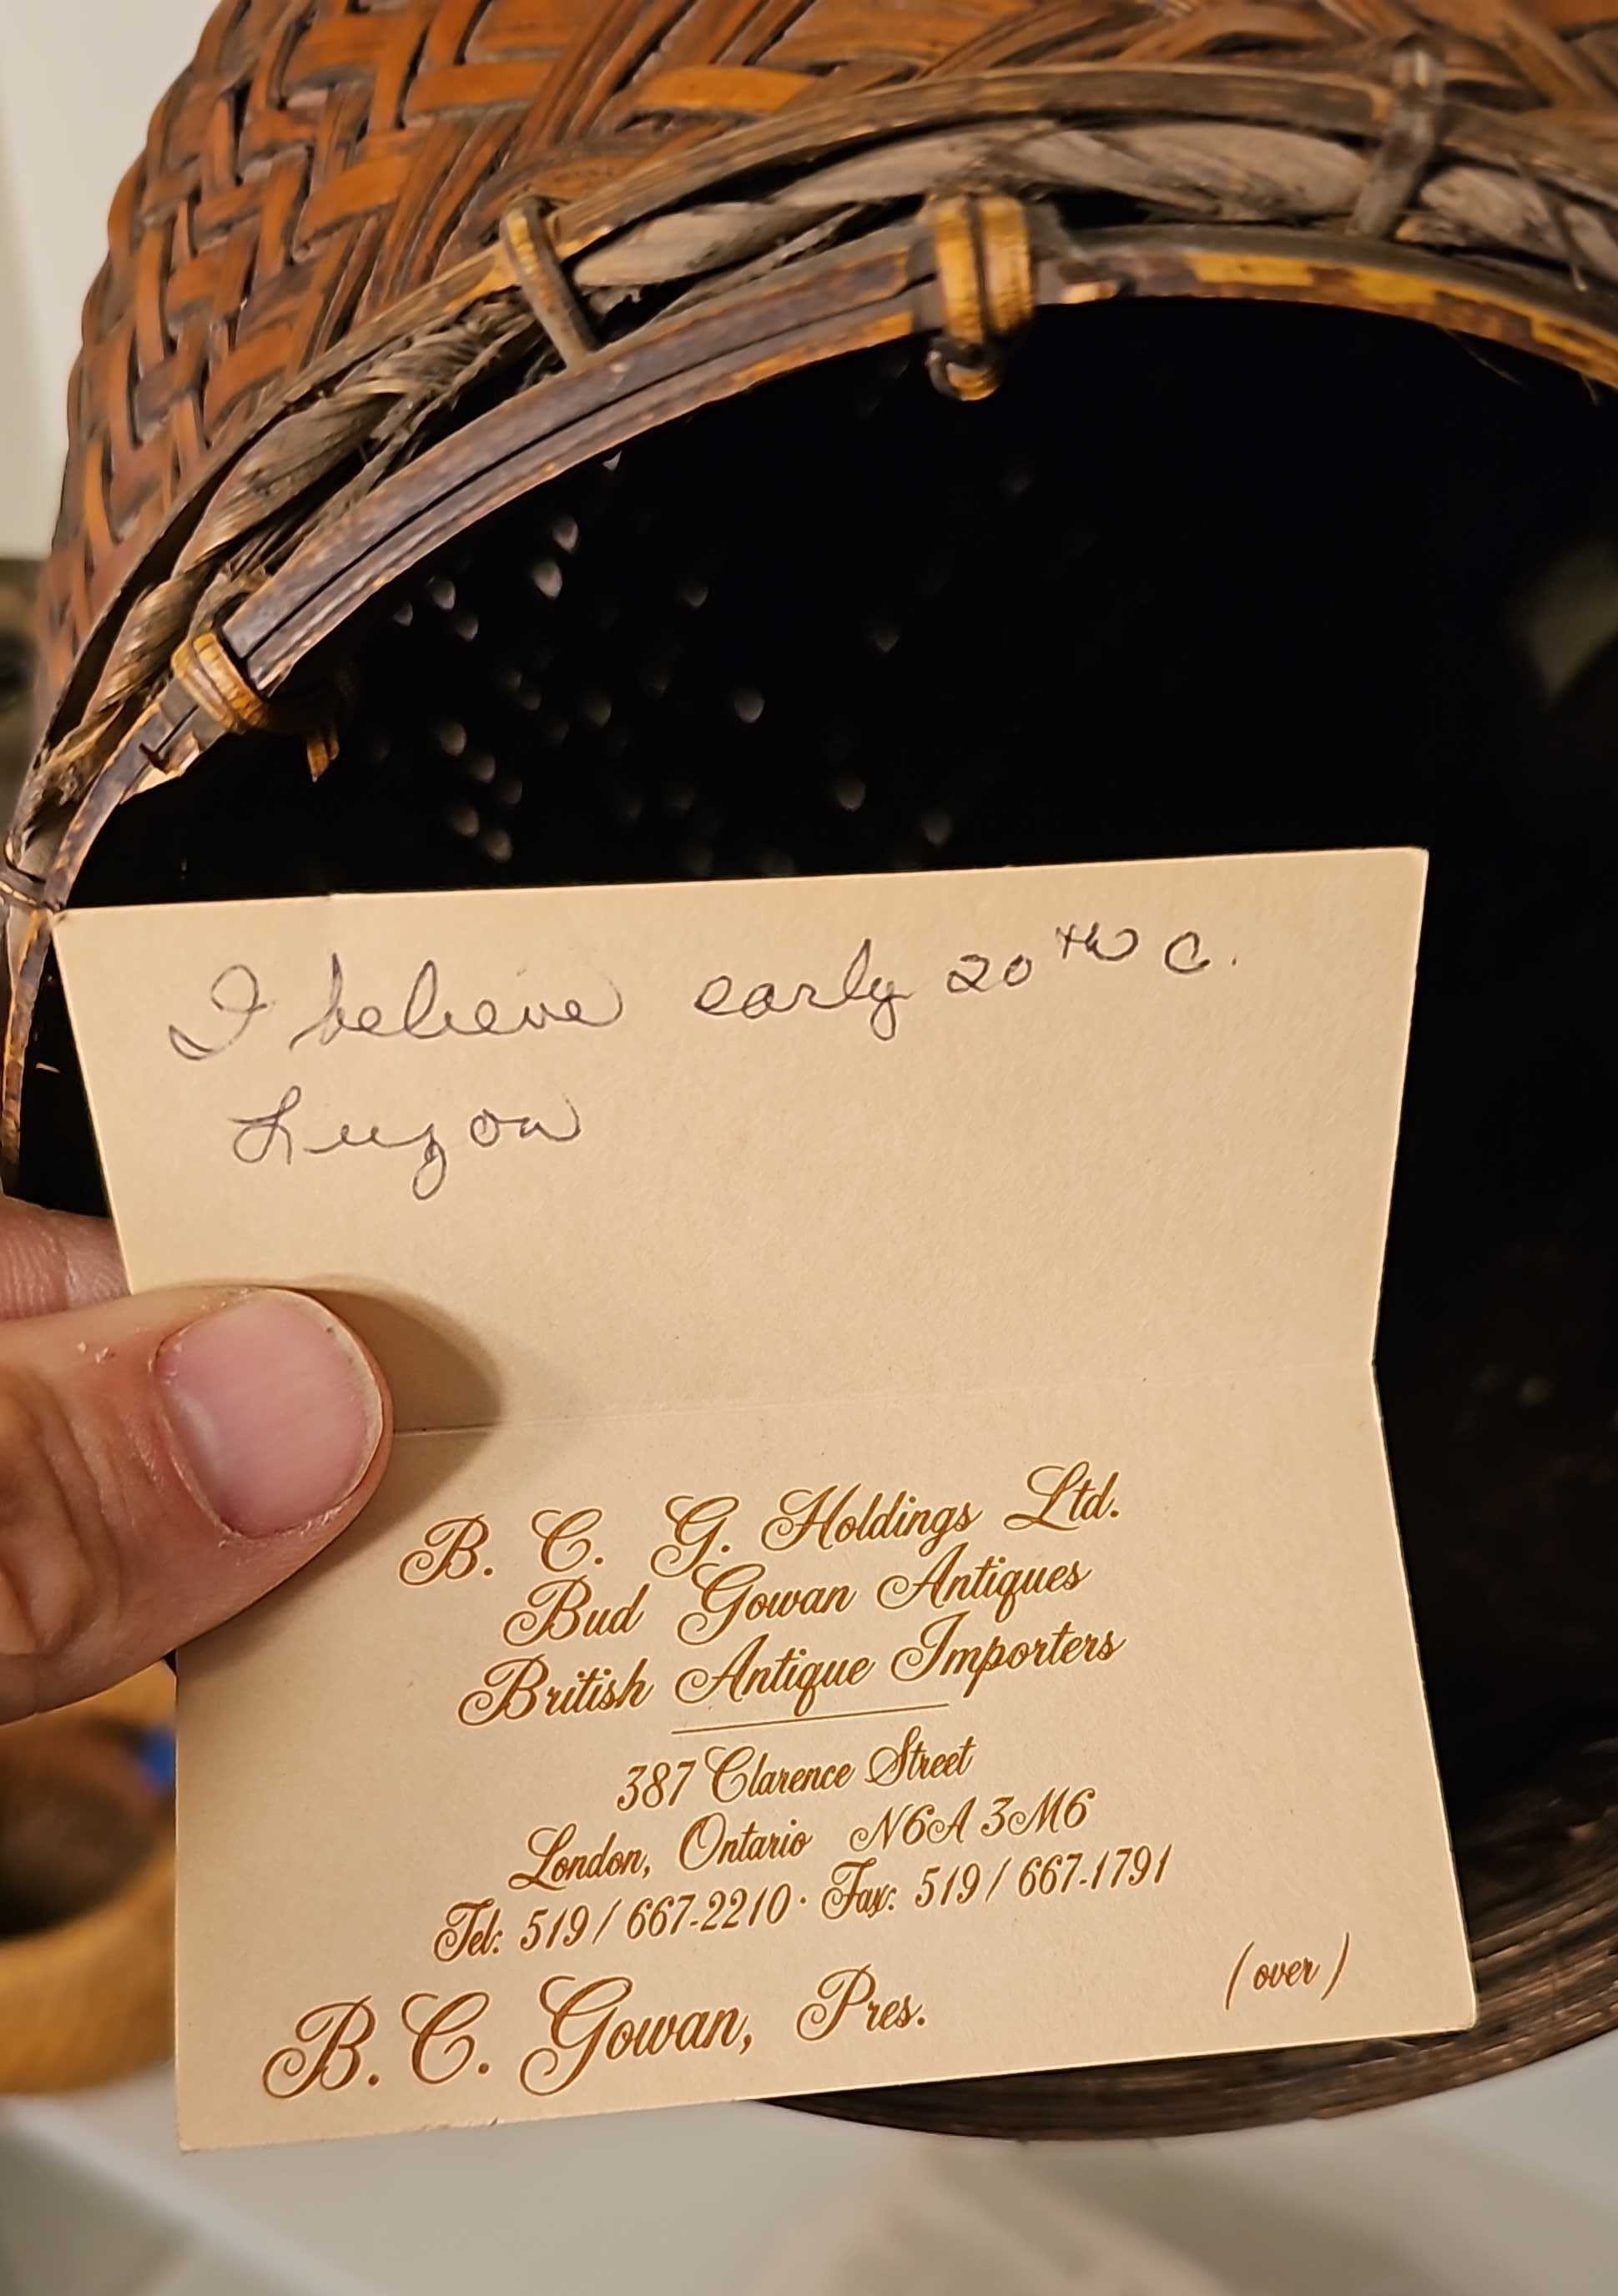 I believe early 20TH C.
Luzon
B. C. G. Holdings Ltd.
Bud Gowan Antiques
British Antique Importers
387 Clarence Street
London, Ontario N6A 3M6
Tel: 519/667-2210 · Fax: 519/667-1791
B. C. Gowan, Pres.
(over)